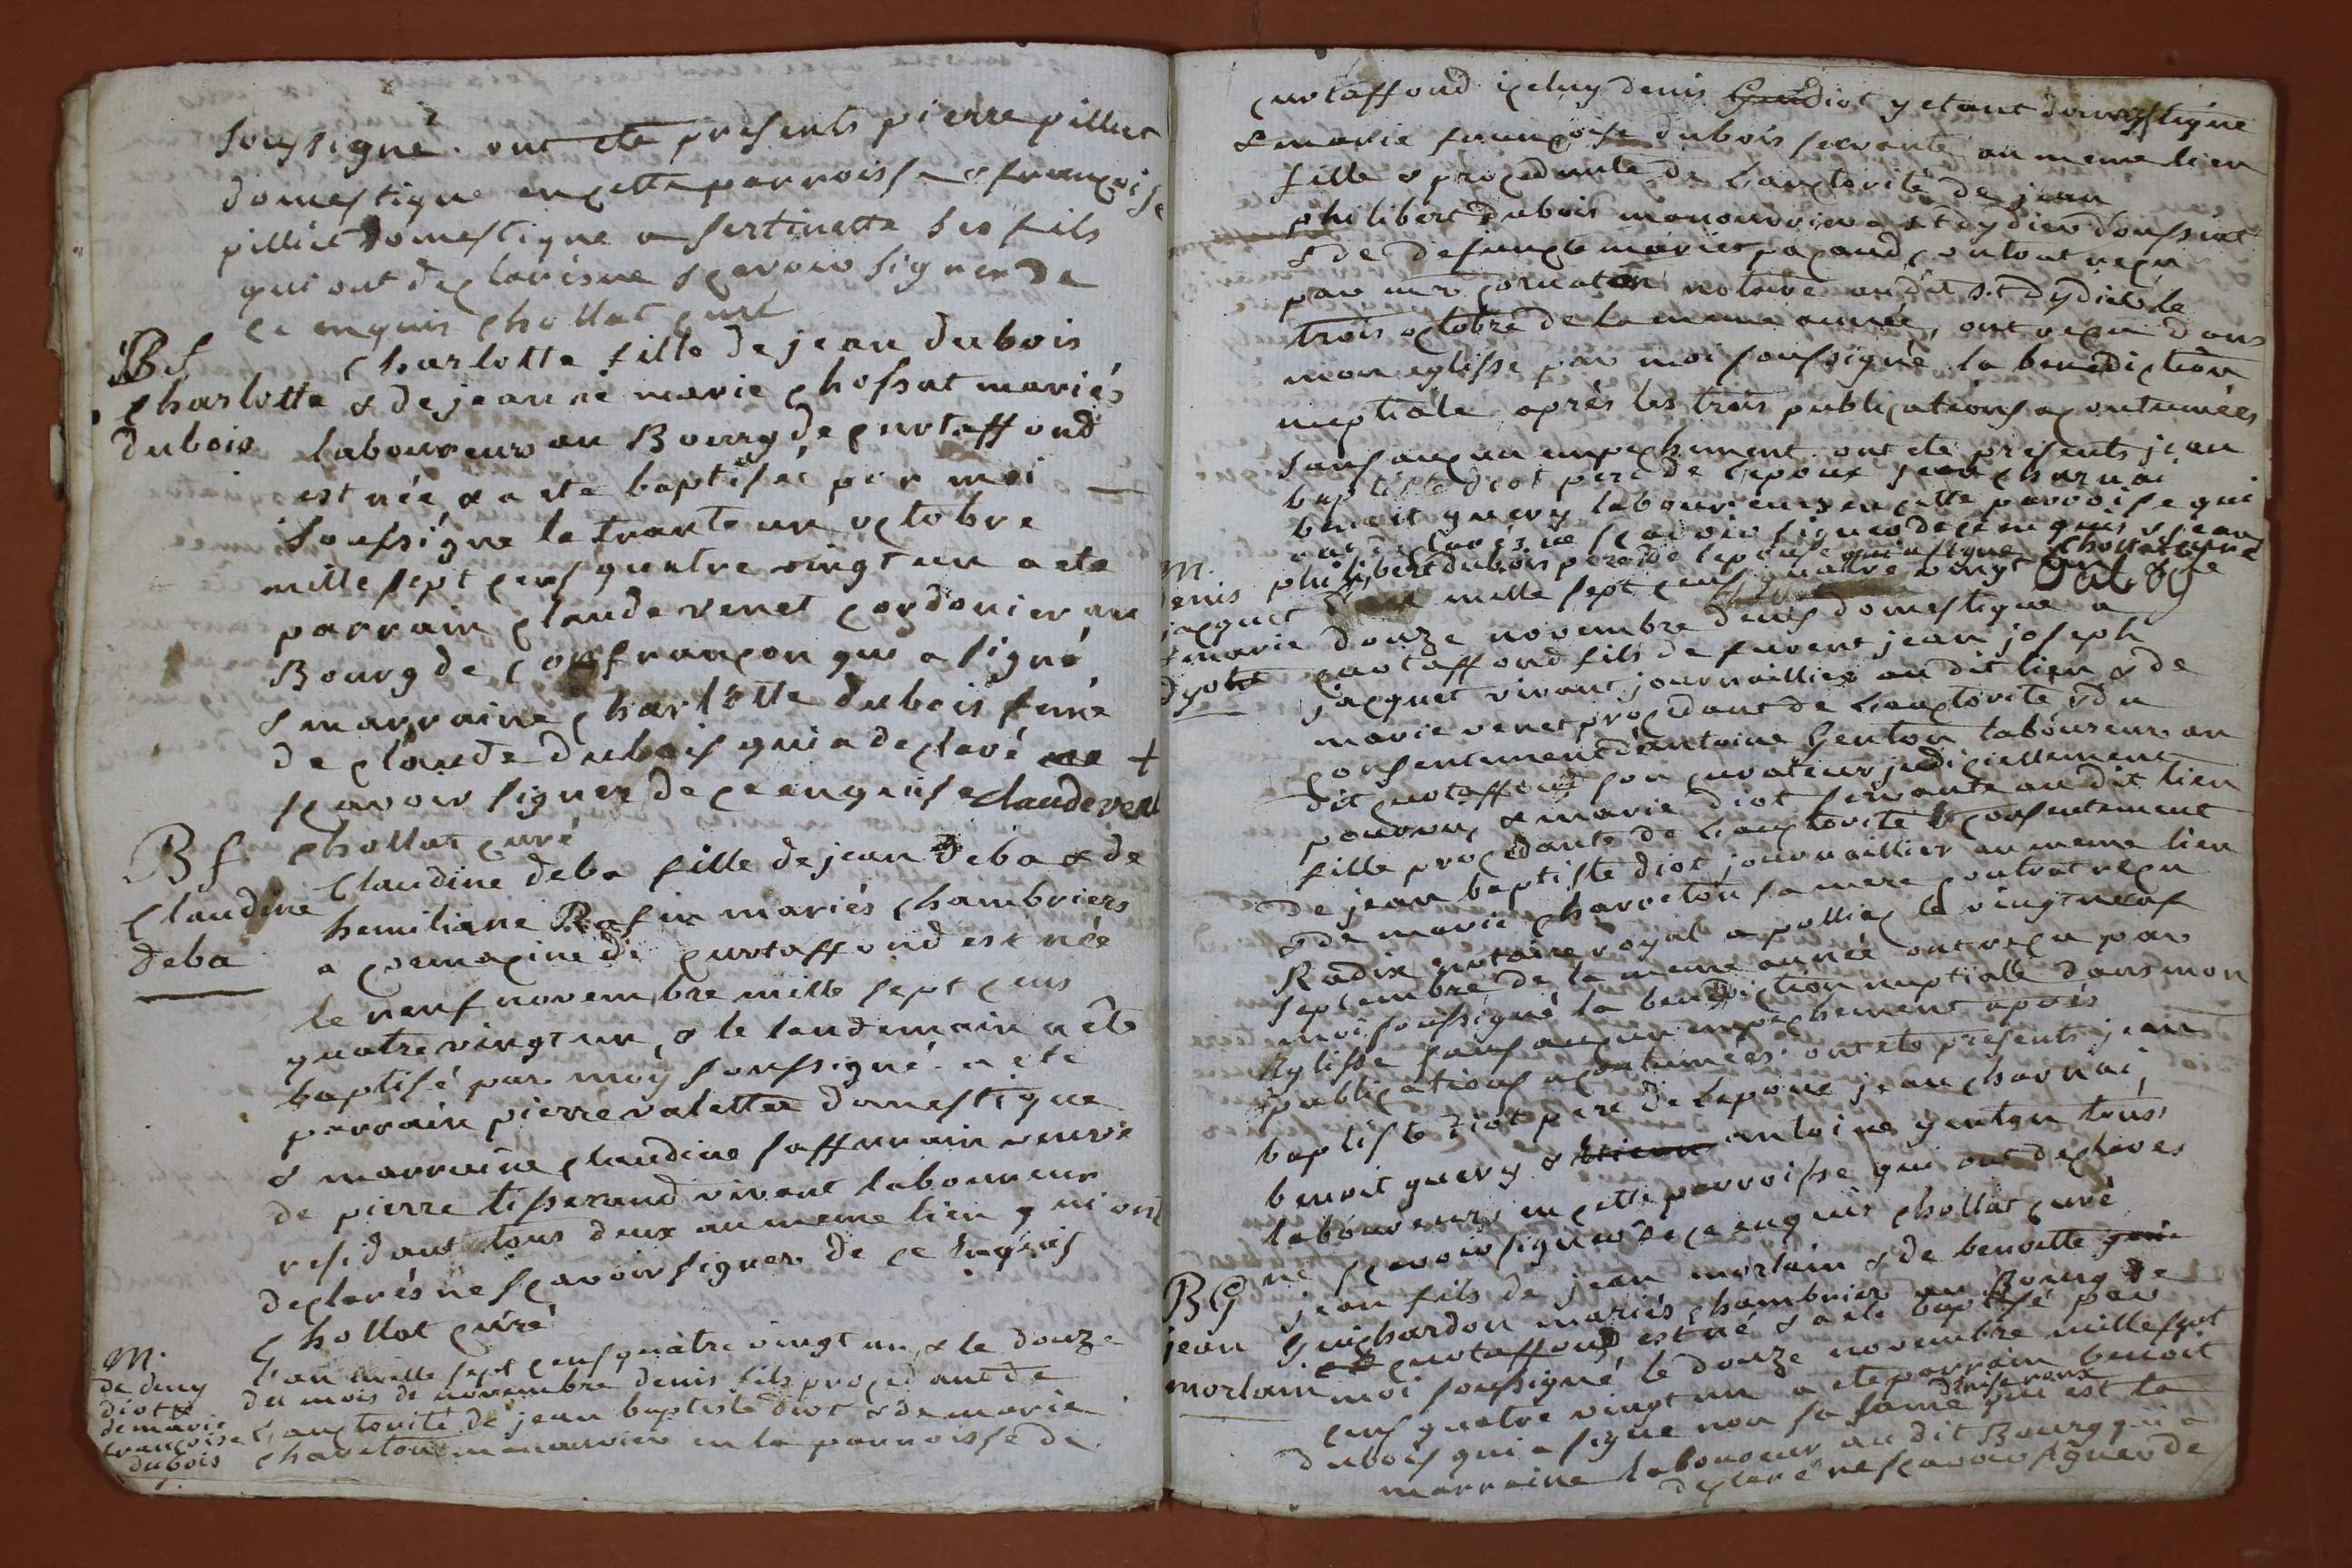 soussigné. ont ete presents pierre pilliet
domestique en cette parroisse & françoise
pilliet domestique a sertinette ses fils
qui ont declarés ne scavoir signer de
ce enquis chollat curé
Bf
charlotte
dubois
charlotte fille de jean dubois
& de jeanne marie chossat mariés
laboureurs au Bourg de curtaffond
est née & a ete baptisée par moi
soussigné le trante un octobre
mille sept cens quatre vingt un a ete
parrain claude venet cordonier au
Bourg de confrançon qui a signé
& marraine charlotte dubois feme
de claude dubois qui a declaré ne +
scavoir signer de ce enquise claude venet
chollat curé
Bf
claudine
deba
claudine deba fille de jean deba & de
hemiliane Rafin mariés chambriers
a cremacine de curtaffond est née
le neuf novembre mille sept cens
quatre vingt un, & le landemain a été
baptisé par moy soussigné. a ete
parrain pierre valette domestique
& marraine claudine saffurain veuve
de pierre tisserand vivant laboureur
residant tous deux au meme lieu qui ont
declarés ne scavoir signer de ce enquis
chollat curé
M.
de deny
diot &
de marie
françoise
dubois
L'an mille sept cens quatre vingt un, & le douze
du mois de novembre denis fils procedant de
l'auctorité de jean baptiste diot & de marie
chareton manouvrier en la parroisse de
curtaffond iceluy denis diot y etant domestique
& marie françoise dubois servante au meme lieu
fille & procedante de l'auctorité de jean
philibert dubois manouvrier a st dydier d'oussiat
& de defuncte marie pacaud contrat reçu
par mr cornaton notaire au dit st dydier le
trois octobre de la meme année, ont reçu dans
mon eglisse par moi soussigné la benediction
nuptiale après les trois publications acoutumées
sans aucun empechement. ont ete presents jean
baptiste diot pere de l'epoux jean charnai
benoit guery laboureurs en cette parroisse qui
ont declarés ne scavoir signer de ce enquis & jean
philibert dubois pere de l'epouse qui a signé chollat curé
M.
denis
jacquet
& marie
dyot
L'an mille sept cens quatre vingt un & le
douze novembre denis domestique a
curtaffond fils de furent jean joseph
jacquet vivant journaillier au dit lieu & de
marie venet procedant de l'auctorité & du
consentement d'antoine Genton laboureur au
dit curtaffond son curateur judiciellement
pourvu & marie diot servante au dit lieu
fille procedante de l'auctorité & consentement
de jean baptiste diot journaillier au meme lieu
& de marie chareton sa mere contrat reçu
Radix notaire royal a polliac le vingt neuf
septembre de la meme année ont reçu par
moi soussigné la benediction nuptialle dans mon
eglisse sans aucun empechement après
publications acoutumées. ont ete presents jean
baptiste diot pere de l'epouse jean charnai,
benoit guery & antoine genton tous
laboureurs en cette parroisse qui ont declarés
ne scavoir signer de ce enquis chollat curé
BG
jean
morlain
jean fils de jean morlain & de benoitte
Guichardon mariés chambrier au Bourg de
curtaffond est né & a ete baptisé par
moi soussigné le douze novembre mille sept
cens quatre vingt un a ete parrain benoit
dubois qui a signé non sa fame qui est la
marraine laboureur au dit Bourg qui a
declaré ne scavoir signer de